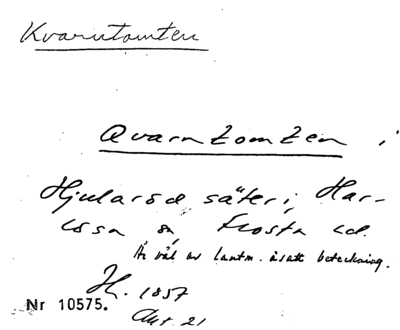 Kvarntomten
Qvarntomten i
Hjularöd säteri, Har-
lösa sn Frosta hd.
Är väl av lantm. åsatt beteckning.
H. 1857
Nr 10575.
Akt 21